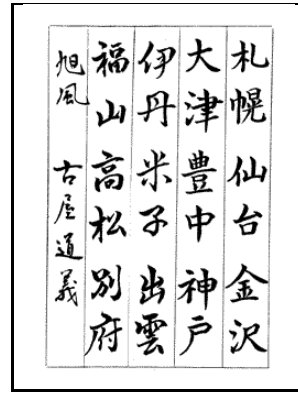 札幌 仙台 金沢
大津 豊中 神戸
伊丹 米子 出雲
福山 高松 別府
旭風 古屋道義